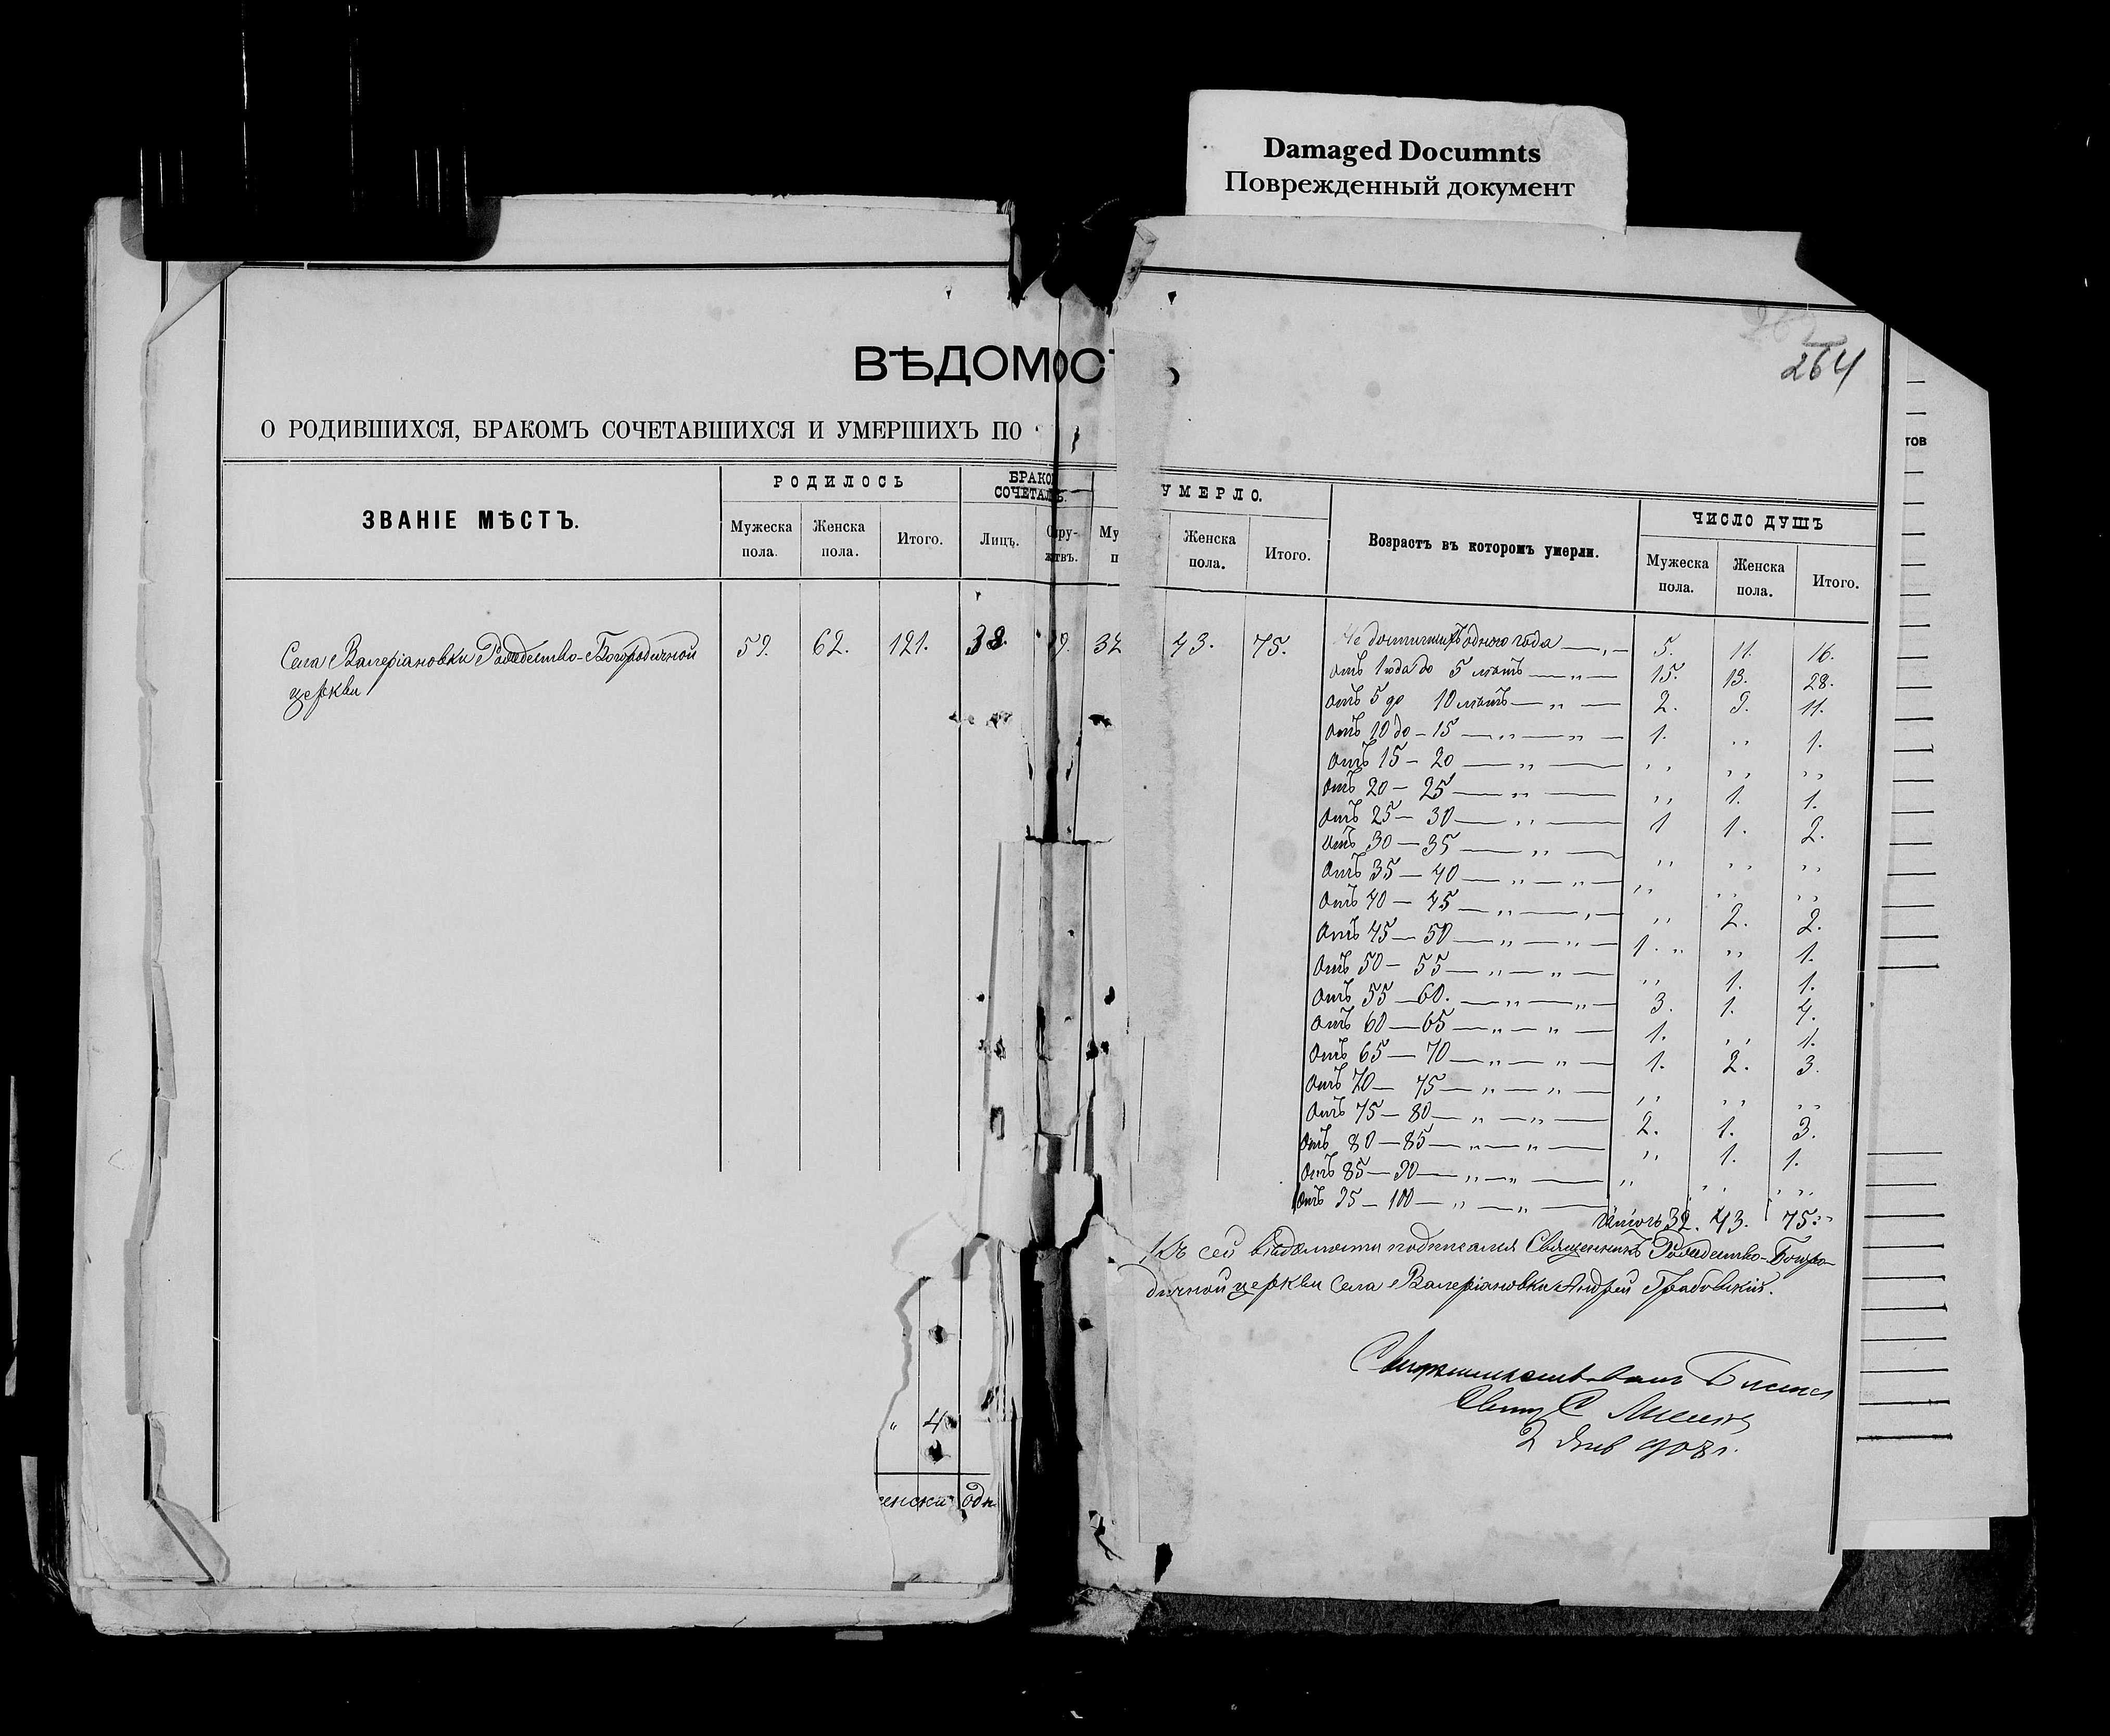 Damaged Documnts
Поврежденный документ
264
ВѢДОМОС
О РОДИВШИХСЯ, БРАКОМЪ СОЧЕТАВШИХСЯ И УМЕРШИХЪ ПО
тов
ЗВАНІЕ МѢСТЪ. РОДИЛОСЬ БРАКО СОЧЕТАЛ УМЕРЛО. Возрастъ въ которомъ умерли. ЧИСЛО ДУШЪ
Мужеска пола. Женска пола. Итого. Лицъ. Супру- жествъ. Му п Женска пола. Итого. Мужеска пола. Женска пола. Итого.
Села Валеріановки Рождество-Богородичной 59. 62. 121. 38. 19. 32 43. 75. Не достигшихъ одного года — „ — 5. 11. 16.
церкви
отъ 1 года до 5 лѣтъ — „ — 15. 13. 28.
отъ 5 до 10 лѣтъ — „ — 2. 9. 11.
отъ 10 до — 15 — „ — „ — 1. „ 1.
отъ 15 — 20 — „ — „ „ „
отъ 20 — 25 — „ — „ 1. 1.
отъ 25 — 30 — „ — 1 1. 2.
отъ 30 — 35 — „ — „ „ „
отъ 35 — 40 — „ — „ — „ „ „
отъ 40 — 45 — „ — „ — „ 2. 2.
отъ 45 — 50 — „ — „ — 1. „ „ 1.
отъ 50 — 55 — „ — „ — „ 1. 1.
отъ 55 — 60. — „ — „ — 3. 1. 4.
отъ 60 — 65 — „ — „ — 1. „ 1.
отъ 65 — 70 — „ — „ — 1. 2. 3.
отъ 70 — 75 — „ — „ — „ „ „
отъ 75 — 80 — „ — „ — 2. 1. 3.
отъ 80 — 85 — „ — „ — „ 1. 1.
отъ 85 — 90 — „ — „ — „ „ „
отъ 95 — 100 — „ — „ —
Итого 32. 43. 75.
Къ сей вѣдомости подписался Священникъ Рождество-Богоро-
дичной церкви села Валеріановки Андрей Грабовскій.
Свящ С
2 Янв 908 г.
„ 4
енска одн